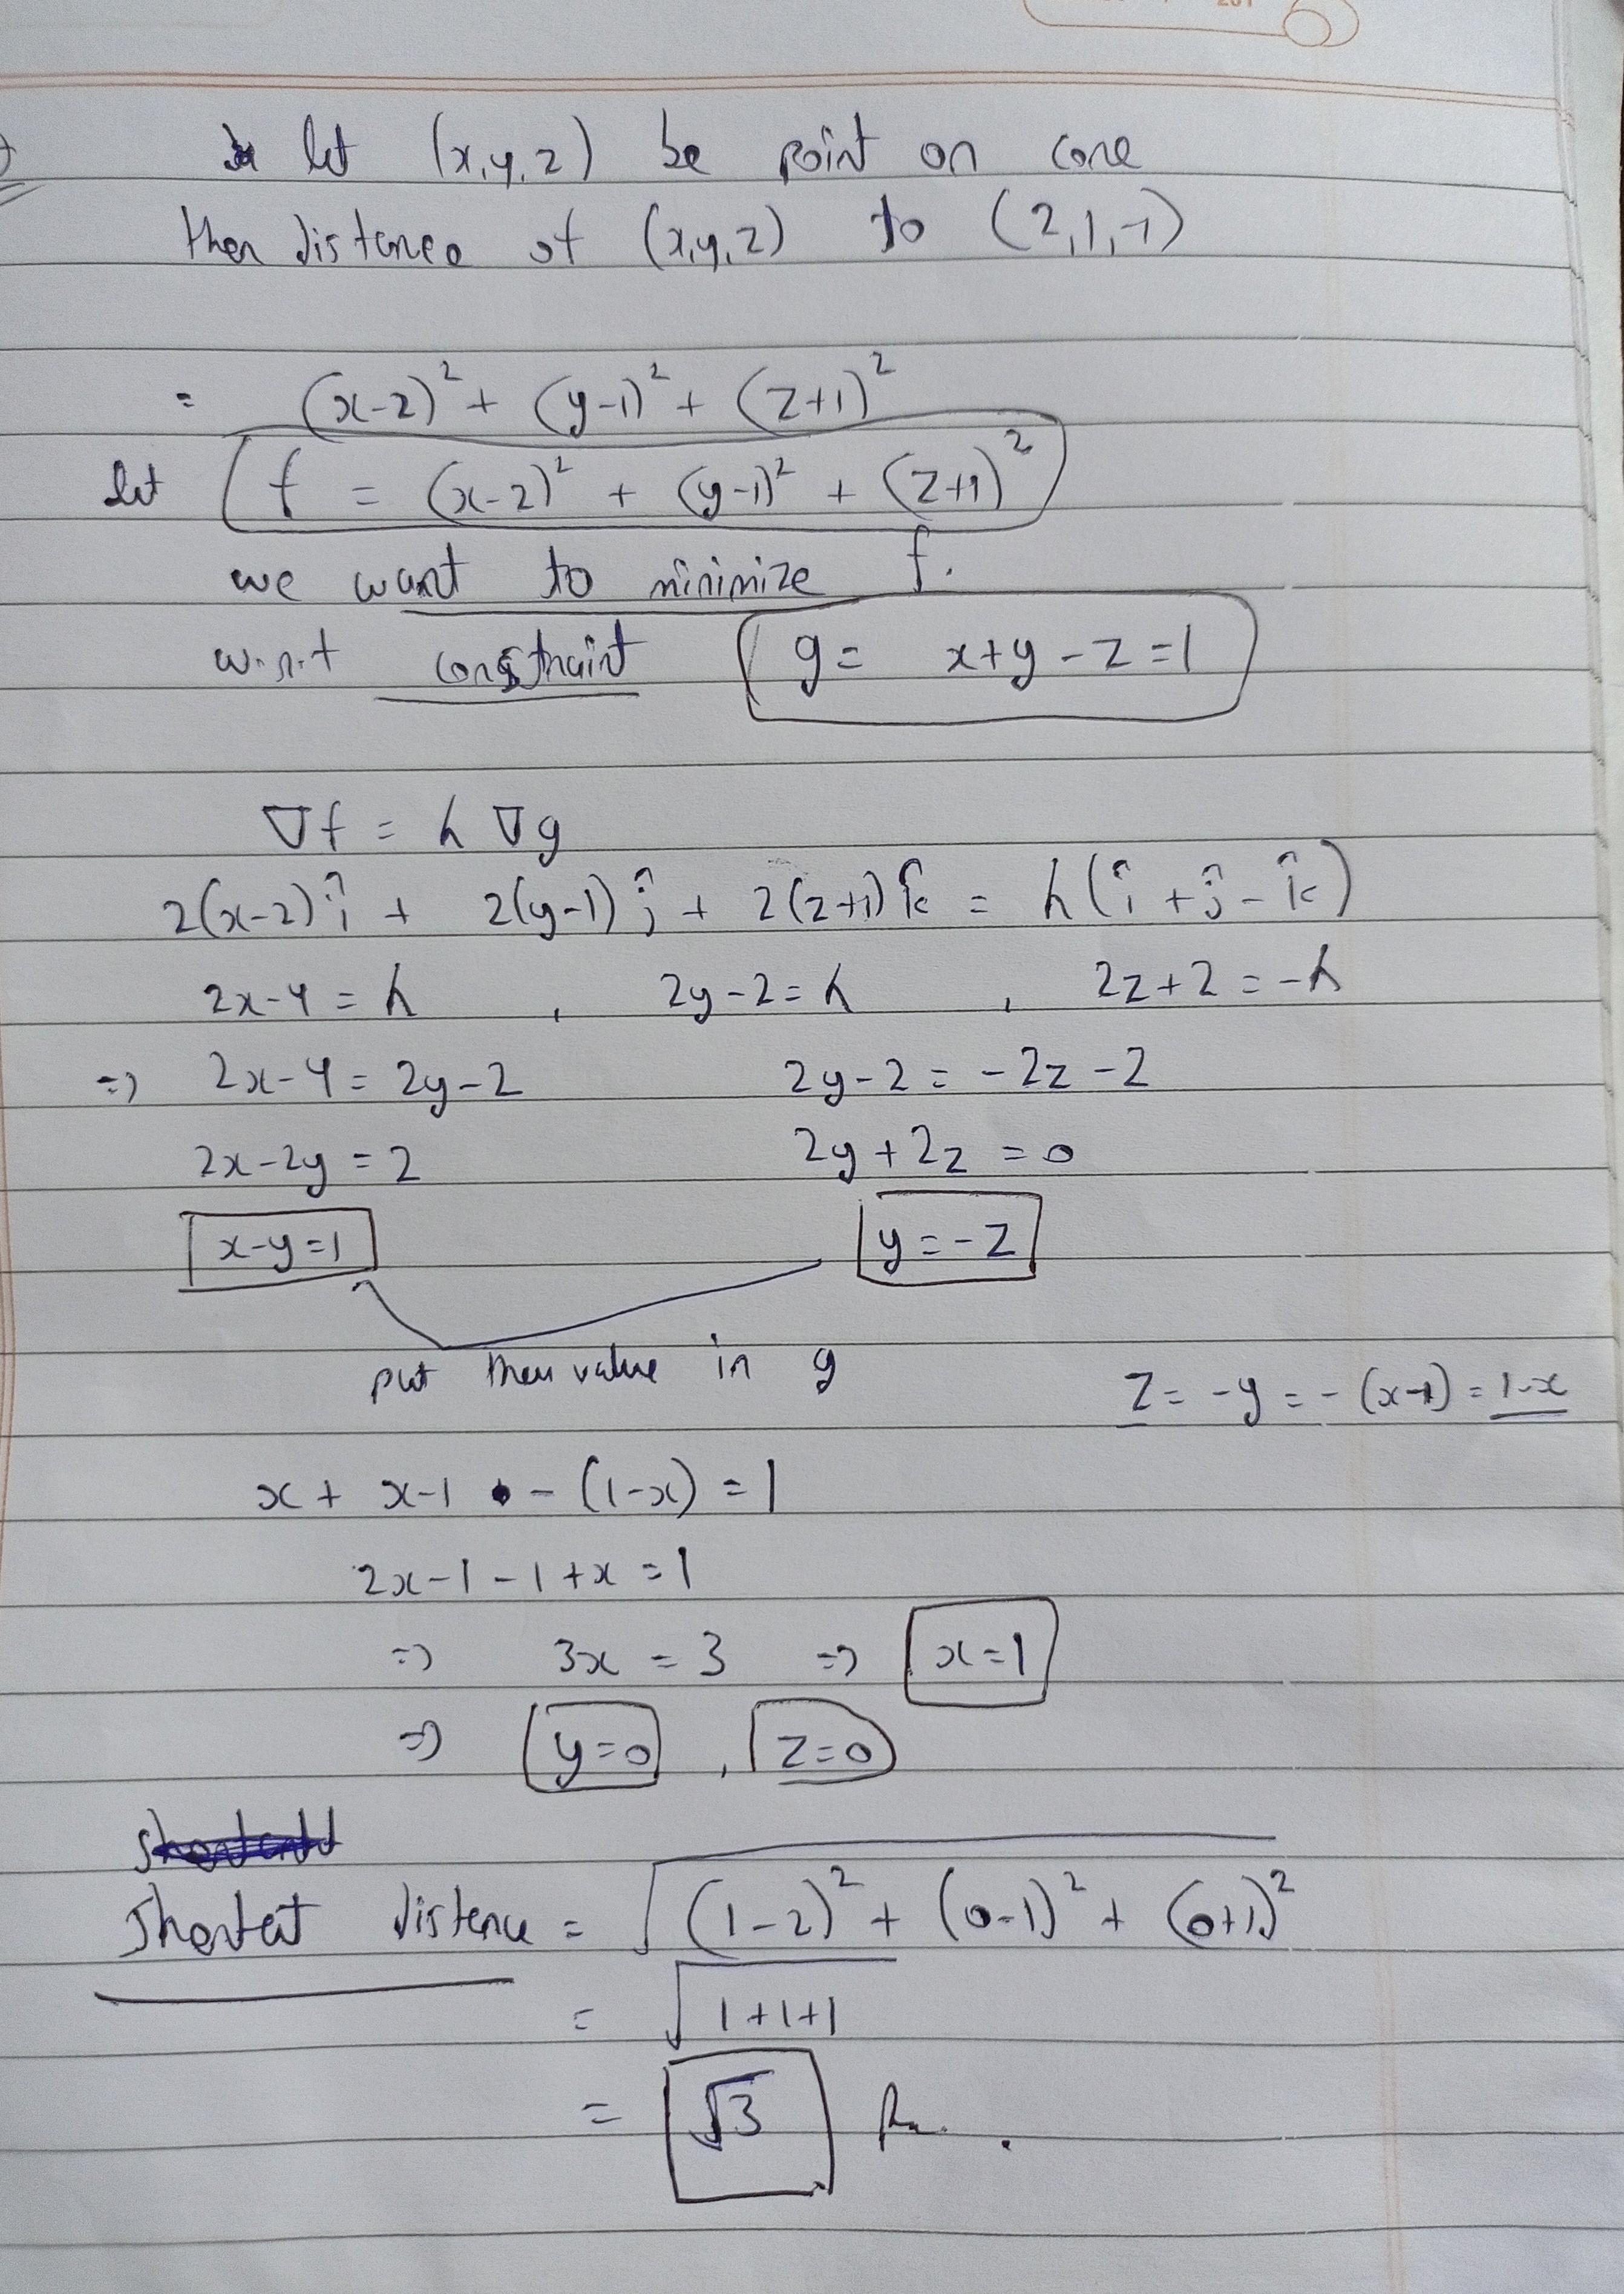 let (x,y,z) be point on cone
then distance of (x,y,z) to (2,1,-1)
= (x-2)² + (y-1)² + (z+1)²
let f = (x-2)² + (y-1)² + (z+1)²
we want to minimize f.
w.r.t constraint g = x+y-z=1
∇f = λ ∇g
2(x-2)î + 2(y-1)ĵ + 2(z+1)k̂ = λ(î + ĵ - k̂)
2x-4 = λ , 2y-2 = λ , 2z+2 = -λ
⇒ 2x-4 = 2y-2 2y-2 = -2z-2
2x-2y = 2 2y+2z = 0
x-y=1 y=-z
put value in g z = -y = -(x-1) = 1-x
x + x-1 - (1-x) = 1
2x-1-1+x = 1
⇒ 3x = 3 ⇒ x=1
⇒ y=0 , z=0
Shortest distance = √(1-2)² + (0-1)² + (0+1)²
= √1+1+1
= √3